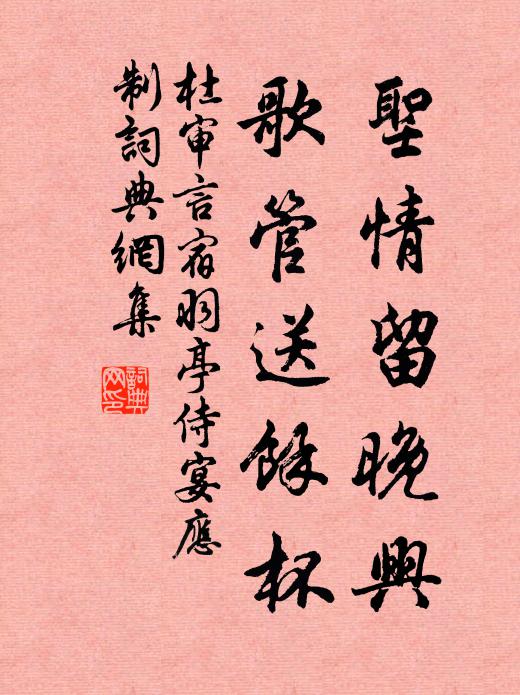 聖情留晚興
歌管送餘杯
杜审言宿羽亭侍宴應
制詞典網集
詞典
网印